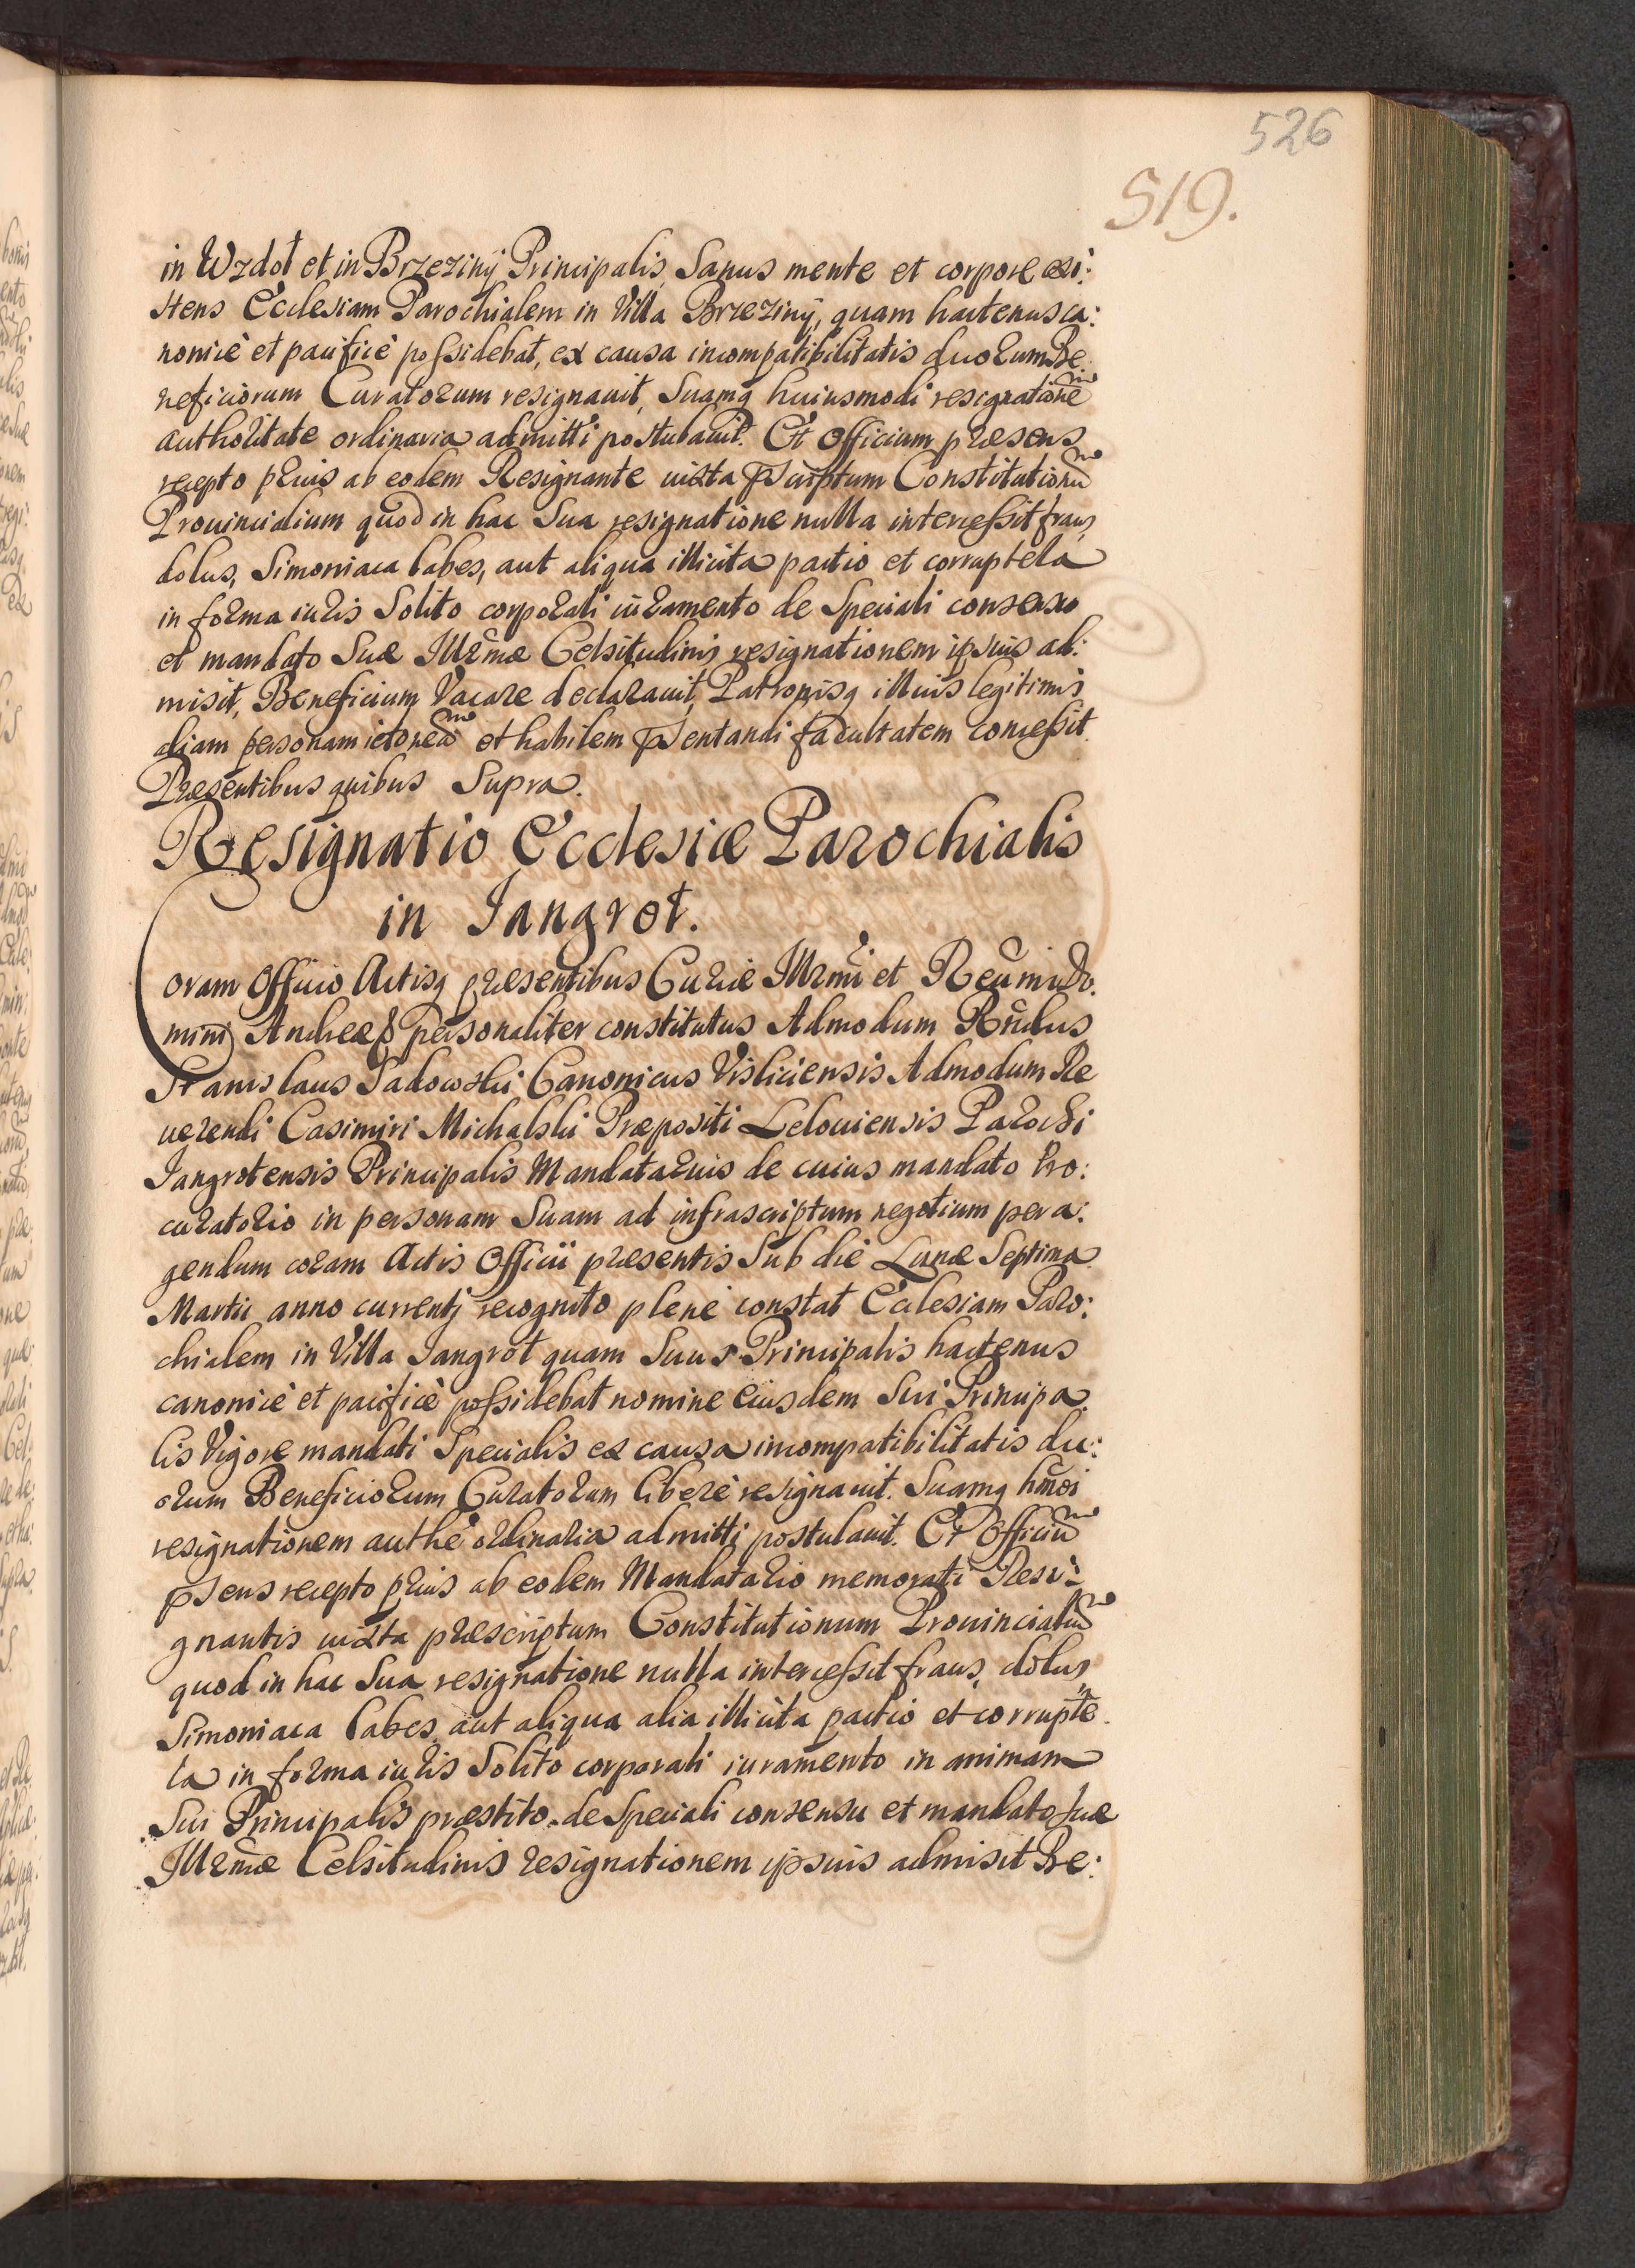 526
519.
in Wzdoł et in Brzeziny Principalis, Sanus mente et corpore exi:
stens Ecclesiam Parochialem in Villa Brzeziny, quam hactenus ca:
nonicè et pacificè possidebat, ex causa incompatibilitatis duorum Be:
neficiorum Curatorum resignavit, Suamq huiusmodi resignationē
authoritate ordinaria admitti postulavit. Et Officium præsens
recepto prius ab eodem Resignante iuxta pscriptum Constitutionū
Provincialium quod in hac Sua resignatione nulla intercessit fraus,
dolus, Simoniaca labes, aut aliqua illicita pactio et corruptela
in forma iuris Solito corporali iuramento de Speciali consensu
et mandato Suæ Illrmæ Celsitudinis resignationem ipsius ad:
misit, Beneficium Vacare declaravit, Patronisq illius legitimis
aliam personam idoneā et habilem psentandi facultatem concessit.
Præsentibus quibus Supra.
Resignatio Ecclesiæ Parochialis
in Jangrot.
Coram Officio Actisq præsentibus Curiæ Illrmi et Reūmi Do:
mini Andreæ & personaliter constitutus Admodum Rndus
Stanislaus Sadowski Canonicus Visliciensis Admodum Re
verendi Casimiri Michalski Præpositi Leloviensis Parochi
Jangrotensis Principalis Mandatarius de cuius mandato Pro:
curatorio in personam Suam ad infrascriptum negotium pera:
gendum coram Actis Officii præsentis Sub die Lunæ Septima
Martii anno currenti recognito plenè constat Ecclesiam Paro:
chialem in Villa Jangrot quam Suus Principalis hactenus
canonicè et pacificè possidebat nomine eiusdem Sui Principa
lis Vigore mandati Specialis ex causa incompatibilitatis du:
orum Beneficiorum Curatorum liberè resignavit. Suamq hmōi
resignationem authē ordinaria admitti postulavit. Et Officiū
psens recepto prius ab eodem Mandatario memorati Resi:
gnantis iuxta præscriptum Constitutionum Provincialiū
quod in hac Sua resignatione nulla intercessit fraus, dolus,
Simoniaca labes, aut aliqua alia illicita pactio et corrupte
la in forma iuris Solito corporali iuramento in animam
Sui Principalis præstito, de Speciali consensu et mandato Suæ
Illrmæ Celsitudinis resignationem ipsius admisit Be: